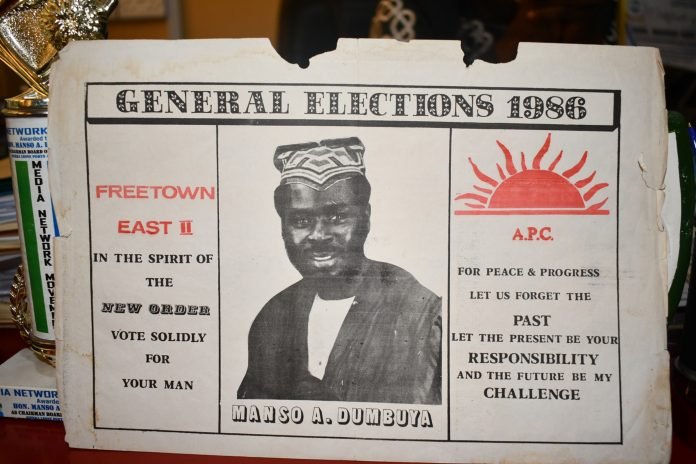 GENERAL ELECTIONS 1986
FREETOWN
EAST II
IN THE SPIRIT OF
THE
NEW ORDER
VOTE SOLIDLY
FOR
YOUR MAN
MANSO A. DUMBUYA
A.P.C.
FOR PEACE & PROGRESS
LET US FORGET THE
PAST
LET THE PRESENT BE YOUR
RESPONSIBILITY
AND THE FUTURE BE MY
CHALLENGE
NETWORK
Awarded
HON. MANSO A.
CHAIRMAN BOARD
MEDIA NETWORK MOVEMENT
NETWORK
Awarded
HON. MANSO A
AS CHAIRMAN BOARD